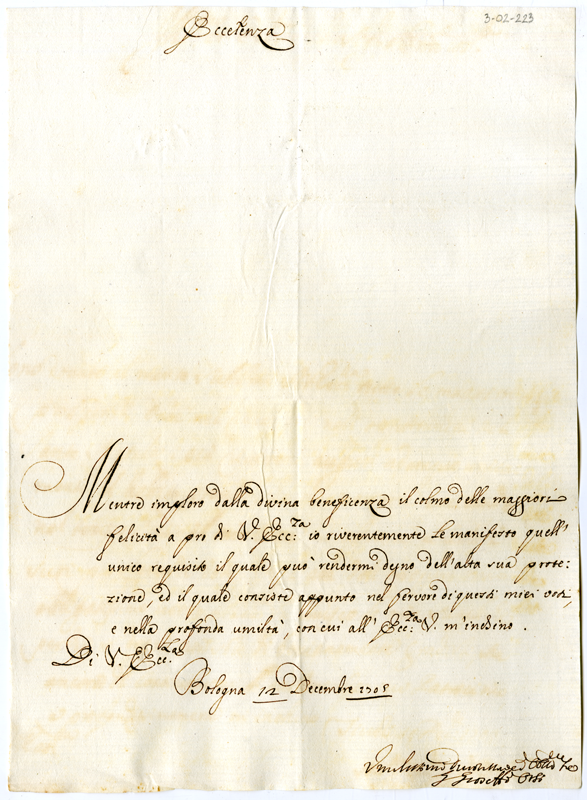 3-02-223
Eccelenza
Mentre imploro dalla divina beneficenza il colmo delle maggiori
felicità a pro di V. Ecc:za io riverentemente le manifesto quell'
unico requisito il quale può rendermi degno dell'alta sua prote:
zione, ed il quale consiste appunto nel fervore di questi miei voti,
e nella profonda umiltà, con cui all' Ecc:za V. m'inchino.
Di V. Ecc:za
Bologna 12 Decembre 1705